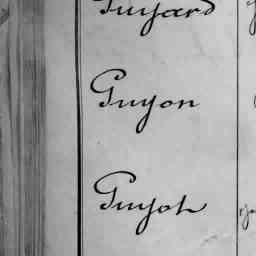 Guyard
Guyon
Guyot